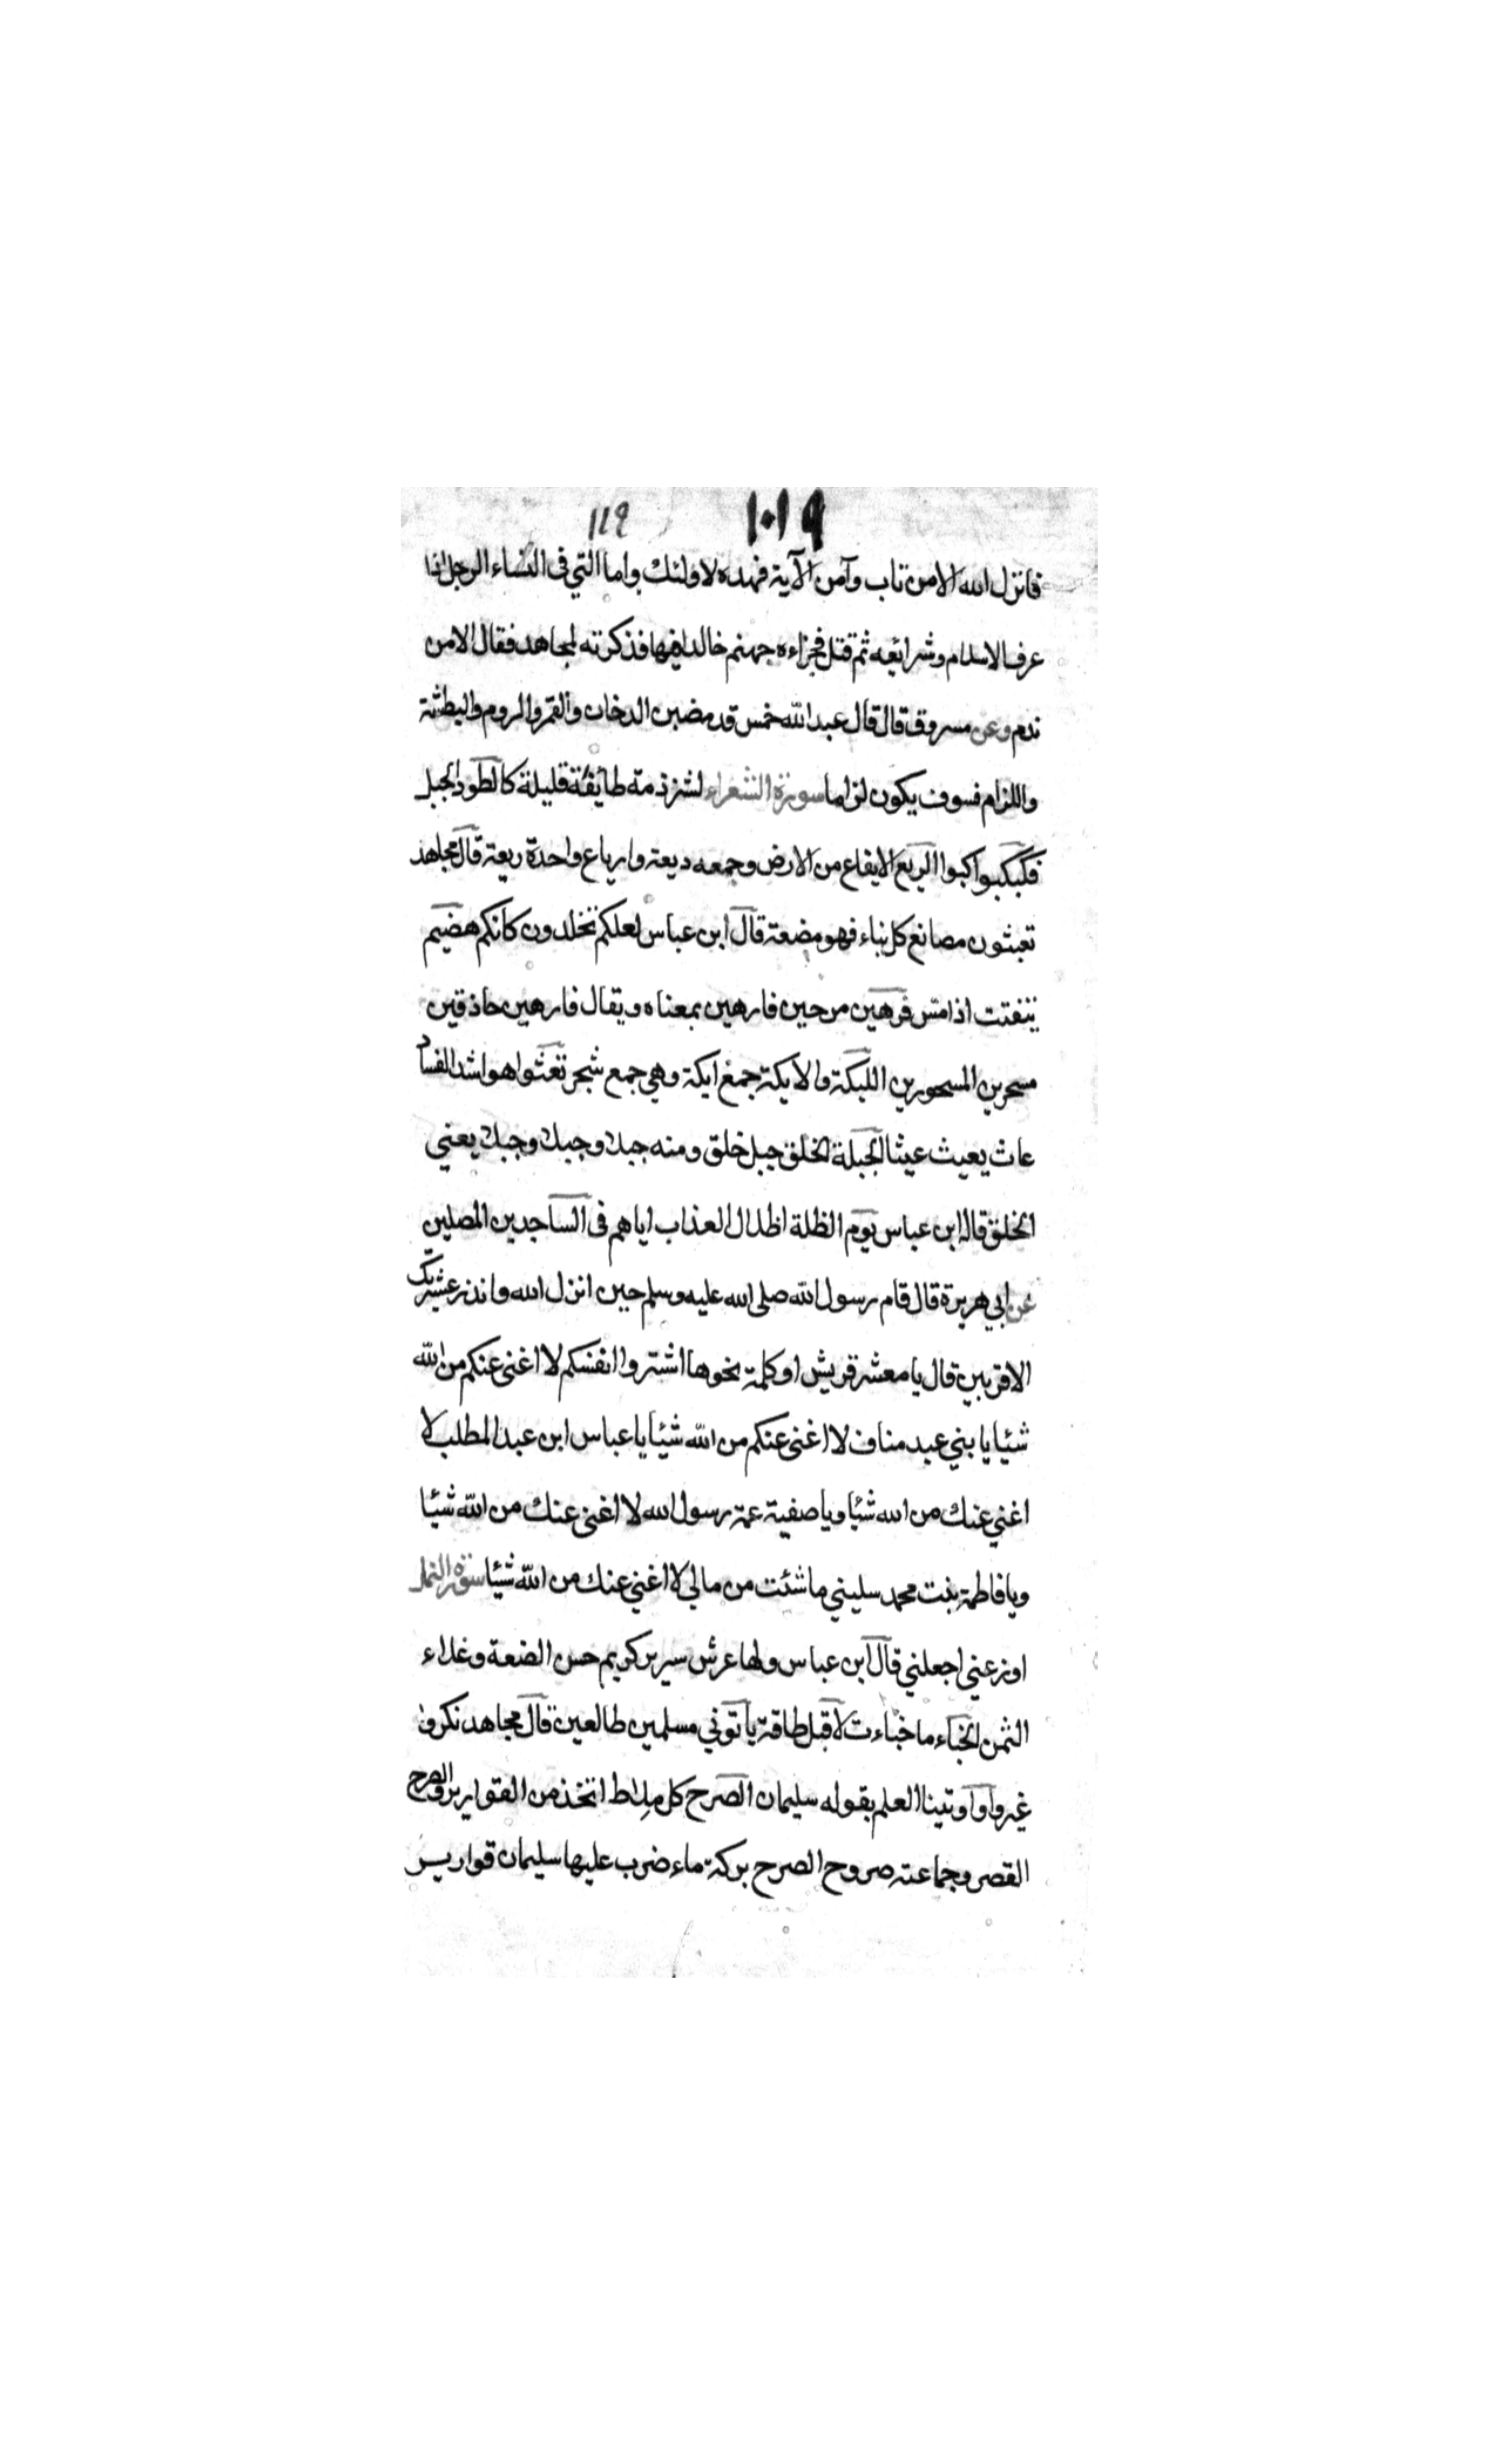 ١٠١٩ ١١٩
فانزل الله الا من تاب وآمن الآية فهده لاولئك واما التي في النساء الرجل اذا
عرف الاسلام وشرائعه ثم قتل فجزاءه جهنم خالدا فيها فذكرته لمجاهد فقال الا من
ندم وعن مسروق قال قال عبد الله خمس قد مضين الدخان والقمر والروم والبطشة
واللزام فسوف يكون لزاما سورة الشعراء لشرذمة طائفة قليلة كالطود الجبل
فكبكبوا كبوا الريع الايفاع من الارض وجمعه ديعة وارياع واحدة ريعة قال مجاهد
تعبثون مصانع كل بناء فهو مضعة قال ابن عباس لعلكم تخلدون كانكم هضيم
يتفتت اذا مس فرهين مرحين فارهين بمعناه ويقال فارهين حاذقين
مسحرين المسحورين الليكة والايكة جمع ايكة وهي جمع شجر تعثوا هو اشد الفساد
عاث يعيث عيثا الجبلة الخلق جبل خلق ومنه جبلا وجبلا وجبلا يعني
الخلق قاله ابن عباس يوم الظلة اظلال العذاب اياهم في الساجدين المصلين
عن ابي هريرة قال قام رسول الله صلى الله عليه وسلم حين انزل الله وانذر عشيرتك
الاقربين قال يا معشر قريش او كلمة نحوها اشتروا انفسكم لا اغني عنكم من الله
شيئا يا بني عبد مناف لا اغني عنكم من الله شيئا يا عباس ابن عبد المطلب لا
اغني عنك من الله شيئا ويا صفية عمة رسول الله لا اغني عنك من الله شيئا
ويا فاطمة بنت محمد سليني ما شئت من مالي لا اغني عنك من الله شيئا سورة النمل
اوزعني اجعلني قال ابن عباس ولها عرش سرير كريم حسن الضعة وغلاء
الثمن الخباء ما خباءت لا قبل طاقة ياتوني مسلمين طالعين قال مجاهد نكروا
غيروا واوتينا العلم بقوله سليمان الصرح كل ملاط اتخذ من القوارير والصرح
القصر وجماعته صروح الصرح بركة ماء ضرب عليها سليمان قوارير